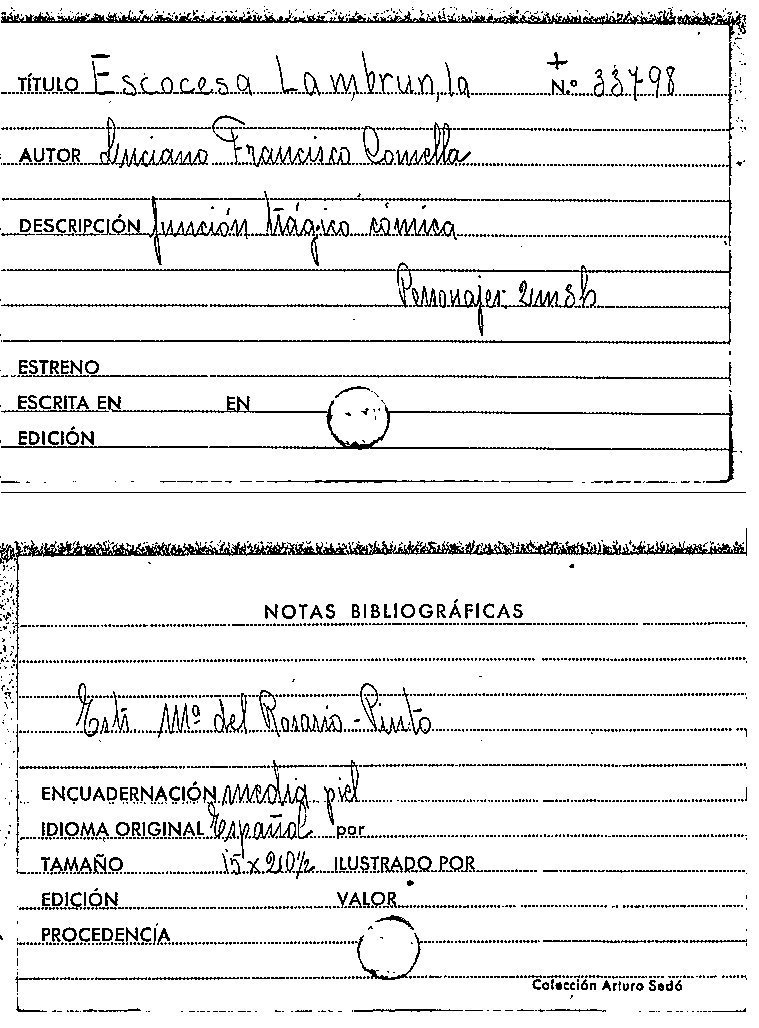 TÍTULO Escocesa Lambrun, la N.º 33798
AUTOR Luciano Francisco Comella
DESCRIPCIÓN función trágico cómica
Personajes 2m8h
ESTRENO
ESCRITA EN EN
EDICIÓN
NOTAS BIBLIOGRÁFICAS
Estr. Mª del Rosario - Pinto
ENCUADERNACIÓN media piel
IDIOMA ORIGINAL Español por
TAMAÑO 15 x 20½ ILUSTRADO POR
EDICIÓN VALOR
PROCEDENCÍA
Colección Arturo Sedó